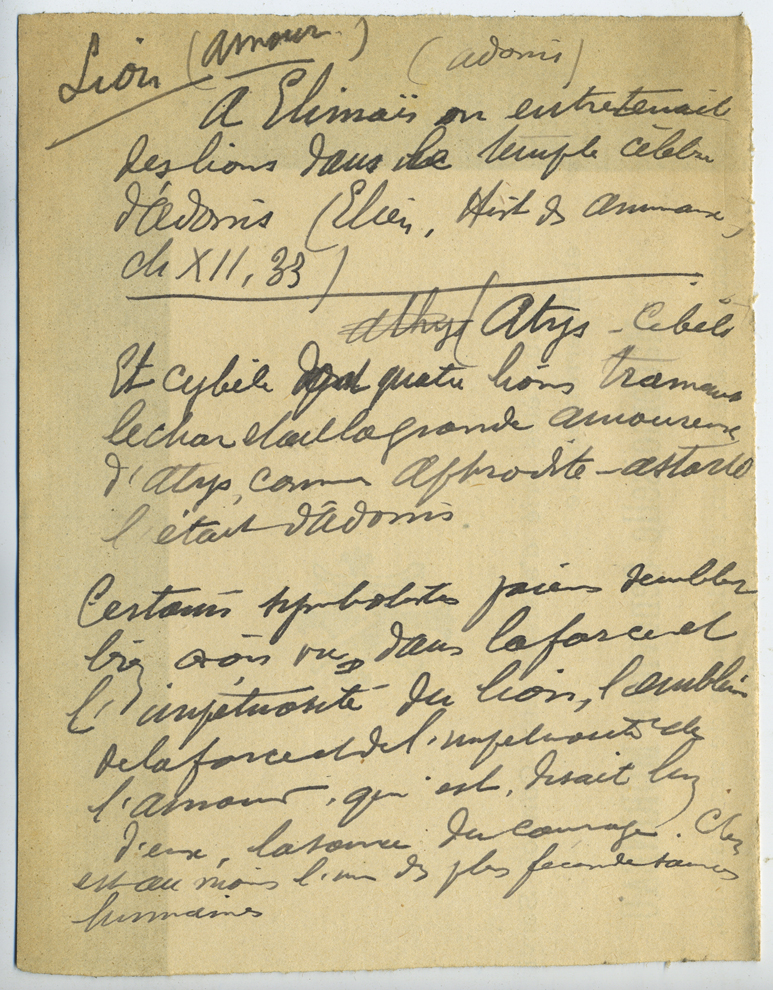 Lion (amour.) (adonis)
A Elimaïs on entretenait
des lions dans le temple célèbre
d'Adonis (Elien, Hist des animaux,
ch XII, 33)
athys (Atys - Cibèle
Et cybèle dont quatre lions trainaient
le char était la grande amoureuse
d'Atys, comme Aphrodite-astarté
l'était d'Adonis
Certains symbolistes païens semblent
bien avoir vu dans la force et
l'impétuosité du lion, l'emblème
de la force et de l'impétuosité de
l'amour, qui est, disait l'un
d'eux, la source du courage.
est au moins l'une des plus fécondes sources
humaines